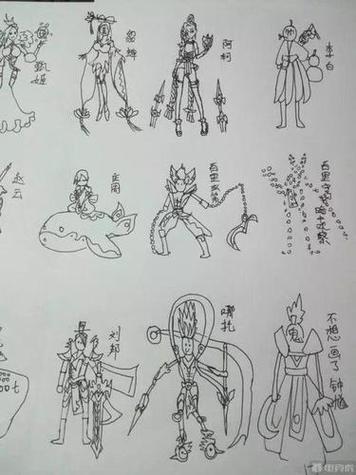 甄姬
貂蝉
阿柯
李白
赵云
庄周
百里玄策
百里守约
刘邦
哪托
鬼
不想画了钟馗